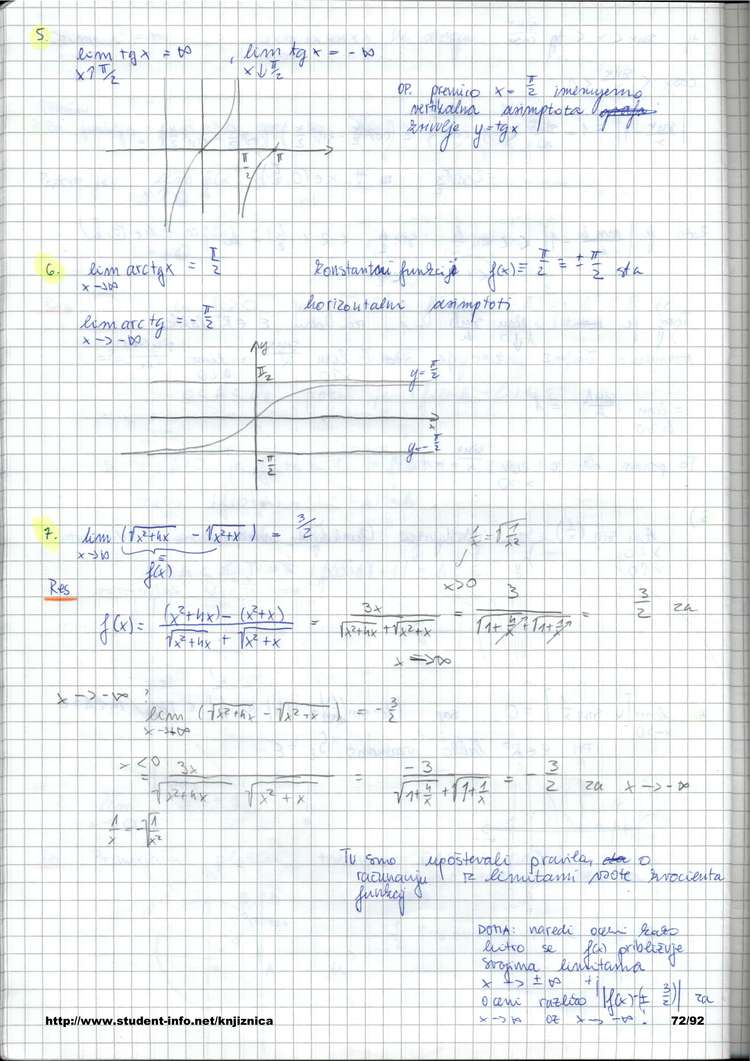 5.
lim tg x = ∞ , lim tg x = -∞
x↑π/2 x↓π/2
OP. premico x = π/2 imenujemo
vertikalna asimptota
krivulje y = tg x
π/2 π
6. lim arctgx = π/2
x→∞
konstantni funkciji f(x) ≡ π/2 ≡ ± π/2 sta
lim arctg = -π/2
x→-∞
horizontalni asimptoti
y
π/2 y = π/2
x
-π/2 y = -π/2
7. lim (√(x²+4x) - √(x²+x)) = 3/2
x→∞
f(x)
1/x = √(1/x²)
Res
x>0
f(x) = ((x²+4x)-(x²+x))/(√(x²+4x) + √(x²+x)) = 3x/(√(x²+4x) + √(x²+x)) = 3/(√(1+4/x) + √(1+1/x)) = 3/2 za
x → ∞
x → -∞ ?
lim (√(x²+4x) - √(x²+x)) = -3/2
x<0
= 3x/(√(x²+4x) √(x²+x)) = -3/(√(1+4/x) + √(1+1/x)) = -3/2 za x → -∞
1/x = -√(1/x²)
Tu smo upoštevali pravila o
računanju z limitami vsote kvocienta
funkcij
DOMA: naredi oceni kako
hitro se f(x) približuje
svojima limitama
x → ± ∞
oceni razliko |f(x)-(± 3/2)| za
x → ∞ oz x → -∞!
http://www.student-info.net/knjiznica 72/92